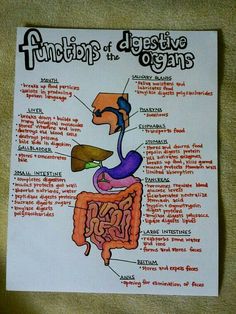 functions of the digestive organs
MOUTH
• breaks up food particles
• assists in producing
spoken language
SALIVARY GLANDS
• saliva moistens and
lubricates food
• amylase digests polysaccharides
PHARYNX
• swallows
ESOPHAGUS
• transports food
LIVER
• breaks down & builds up
many biological molecules
• stores vitamins and iron
• destroys old blood cells
• destroys poisons
• bile aids in digestion
GALLBLADDER
• stores & concentrates
bile
STOMACH
• stores and churns food
• pepsin digests protein
• HCl activates enzymes,
breaks up food, kills germs
• mucus protects stomach wall
• limited absorption
SMALL INTESTINE
• completes digestion
• mucus protects gut wall
• absorbs nutrients, water
• peptidase digests proteins
• sucrase digests sugars
• amylase digests
polysaccharides
PANCREAS
• hormones regulate blood
glucose levels
• bicarbonates neutralize
stomach acid
• trypsin & chymotrypsin
digest proteins
• amylase digests polysacc
• lipase digests lipids
LARGE INTESTINES
• reabsorbs some water
and ions
• forms and stores feces
RECTUM
• stores and expels feces
ANUS
• opening for elimination of feces